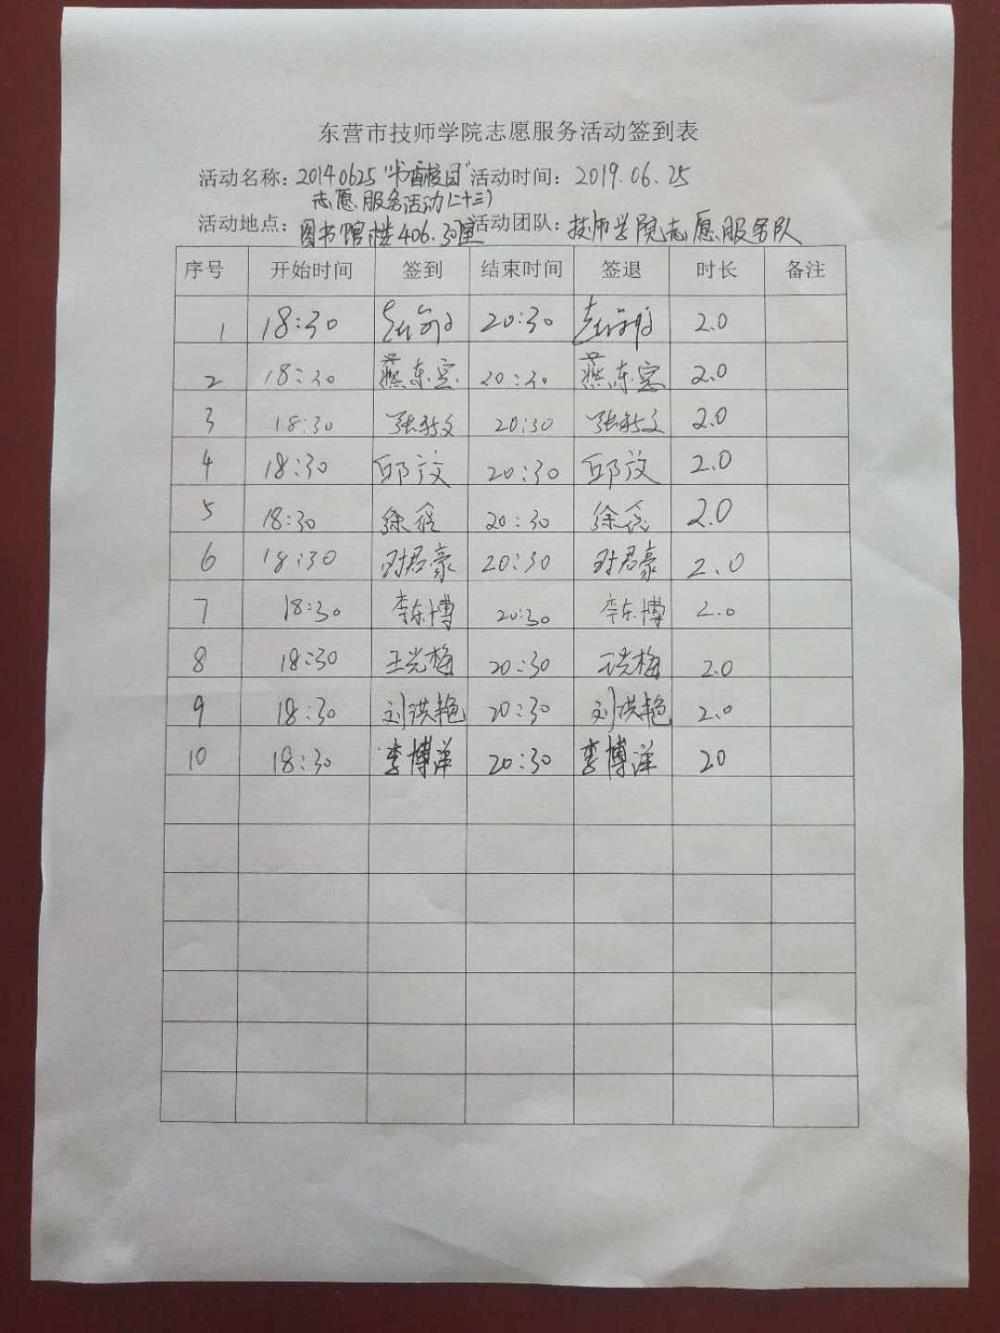 东营市技师学院志愿服务活动签到表
活动名称：20140625"书香校园" 活动时间：2019.06.25
志愿服务活动(二十三)
活动地点：图书馆楼406.30室 活动团队：技师学院志愿服务队
序号 开始时间 签到 结束时间 签退 时长 备注
1 18:30 20:30 2.0
2 18:30 燕东宝 20:30 燕东宝 2.0
3 18:30 张新文 20:30 张新文 2.0
4 18:30 邱汶 20:30 邱汶 2.0
5 18:30 徐 20:30 徐 2.0
6 18:30 君豪 20:30 君豪 2.0
7 18:30 李东博 20:30 李东博 2.0
8 18:30 王光梅 20:30 王光梅 2.0
9 18:30 刘洪艳 20:30 刘洪艳 2.0
10 18:30 李博洋 20:30 李博洋 20